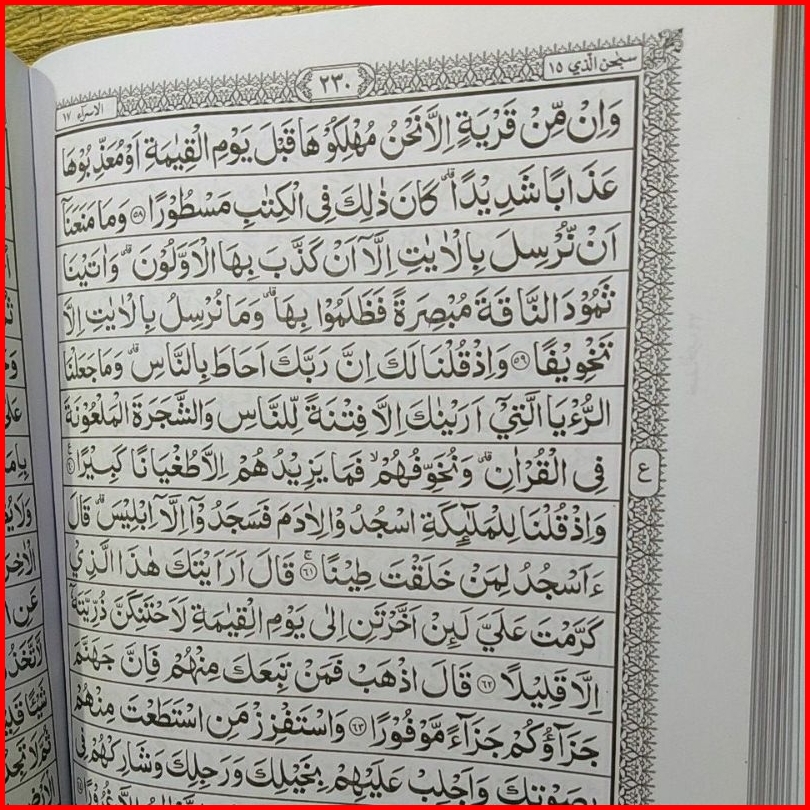 سبحن الذي ١٥
٢٣٠
الاسراء ١٧
وَاِنْ مِّنْ قَرْيَةٍ اِلَّا نَحْنُ مُهْلِكُوْهَا قَبْلَ يَوْمِ الْقِيٰمَةِ اَوْ مُعَذِّبُوْهَا
عَذَابًا شَدِيْدًاۗ كَانَ ذٰلِكَ فِى الْكِتٰبِ مَسْطُوْرًا ٥٨ وَمَا مَنَعَنَآ
اَنْ نُّرْسِلَ بِالْاٰيٰتِ اِلَّآ اَنْ كَذَّبَ بِهَا الْاَوَّلُوْنَۗ وَاٰتَيْنَا
ثَمُوْدَ النَّاقَةَ مُبْصِرَةً فَظَلَمُوْا بِهَاۗ وَمَا نُرْسِلُ بِالْاٰيٰتِ اِلَّا
تَخْوِيْفًا ٥٩ وَاِذْ قُلْنَا لَكَ اِنَّ رَبَّكَ اَحَاطَ بِالنَّاسِۗ وَمَا جَعَلْنَا
الرُّءْيَا الَّتِيْٓ اَرَيْنٰكَ اِلَّا فِتْنَةً لِّلنَّاسِ وَالشَّجَرَةَ الْمَلْعُوْنَةَ
فِى الْقُرْاٰنِۗ وَنُخَوِّفُهُمْۙ فَمَا يَزِيْدُهُمْ اِلَّا طُغْيَانًا كَبِيْرًا ٦٠
ع
وَاِذْ قُلْنَا لِلْمَلٰۤىِٕكَةِ اسْجُدُوْا لِاٰدَمَ فَسَجَدُوْٓا اِلَّآ اِبْلِيْسَۗ قَالَ
ءَاَسْجُدُ لِمَنْ خَلَقْتَ طِيْنًاۚ ٦١ قَالَ اَرَاَيْتَكَ هٰذَا الَّذِيْ
كَرَّمْتَ عَلَيَّ لَىِٕنْ اَخَّرْتَنِ اِلٰى يَوْمِ الْقِيٰمَةِ لَاَحْتَنِكَنَّ ذُرِّيَّتَهٗٓ
اِلَّا قَلِيْلًا ٦٢ قَالَ اذْهَبْ فَمَنْ تَبِعَكَ مِنْهُمْ فَاِنَّ جَهَنَّمَ
جَزَاۤؤُكُمْ جَزَاۤءً مَّوْفُوْرًا ٦٣ وَاسْتَفْزِزْ مَنِ اسْتَطَعْتَ مِنْهُمْ
بِصَوْتِكَ وَاَجْلِبْ عَلَيْهِمْ بِخَيْلِكَ وَرَجِلِكَ وَشَارِكْهُمْ فِى